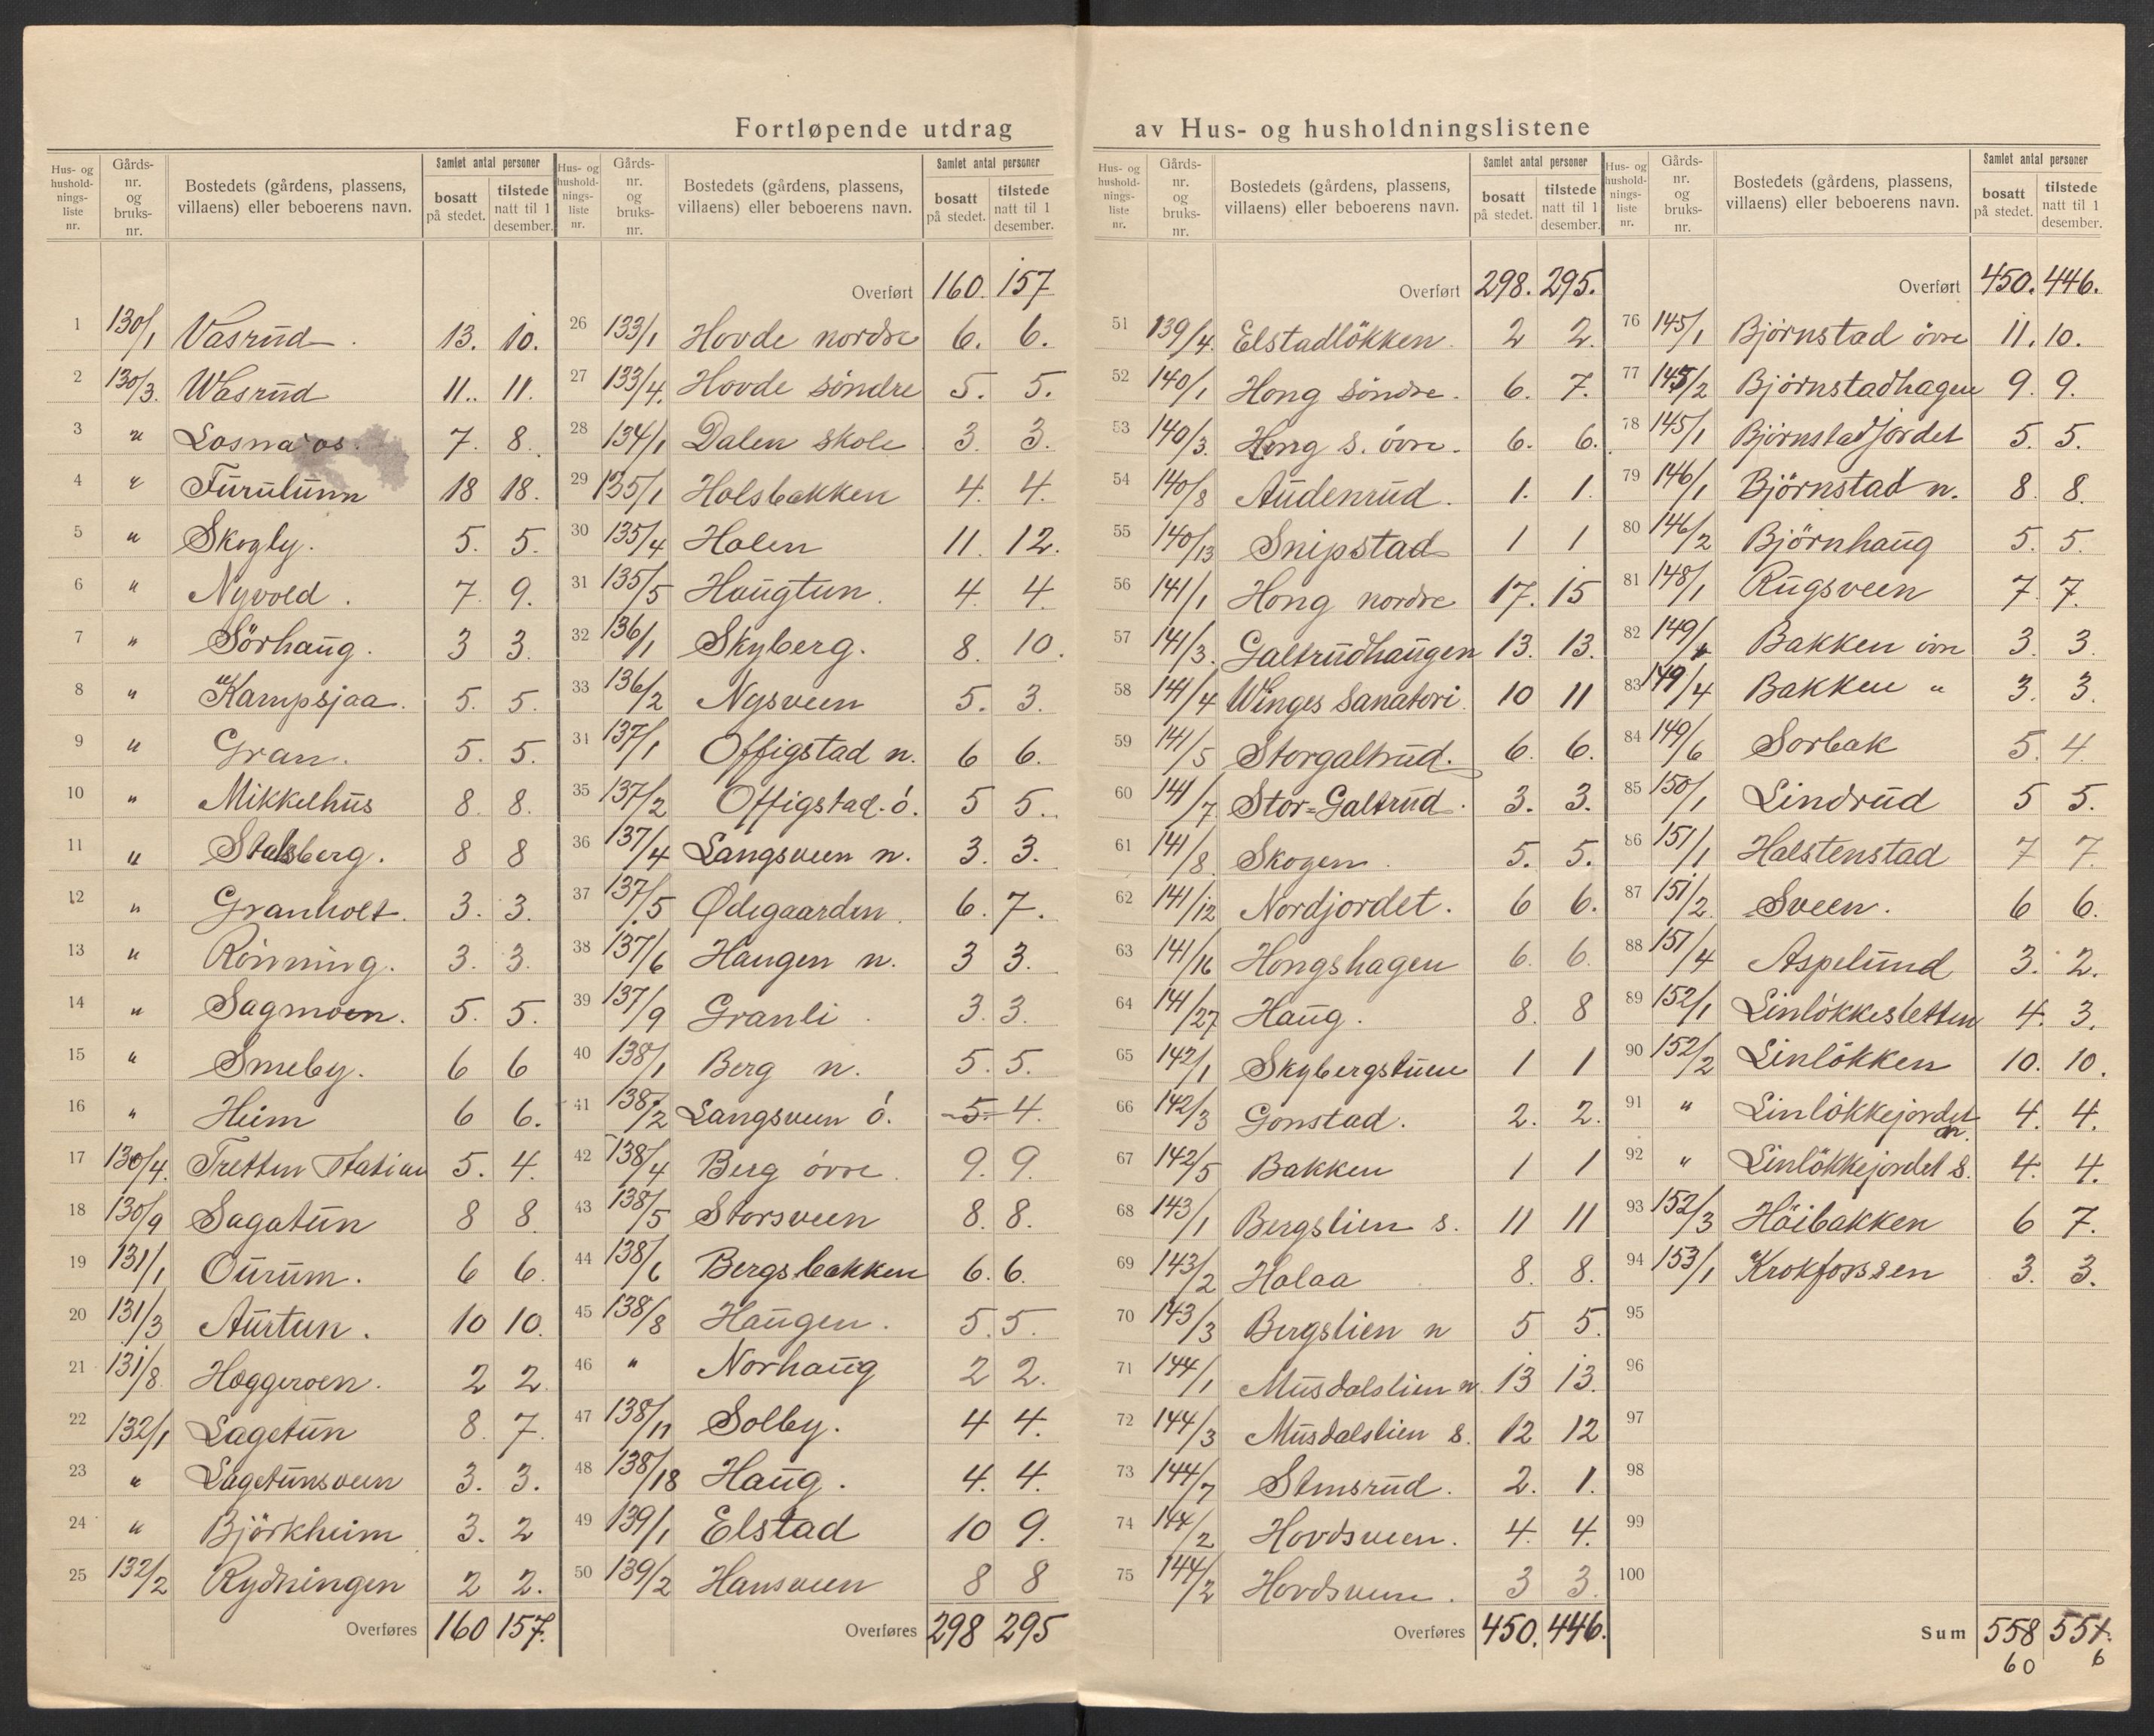 Fortløpende utdrag av Hus- og husholdningslistene
Hus- og hushold-nings-liste nr. Gårds-nr. og bruks-nr. Bostedets (gårdens, plassens, villaens) eller beboerens navn. Samlet antal personer bosatt på stedet. tilstede natt til 1 desember.
1 130/1 Vasrud 13. 10.
2 130/3. Wasrud 11. 11.
3 " Losna os. 7. 8.
4 " Furulunn 18 18.
5 " Skogly. 5. 5.
6 " Nyvold. 7. 9.
7 " Sörhaug. 3 3.
8 " Kampsjaa. 5. 5.
9 " Gran. 5. 5.
10 " Mikkelhus 8. 8.
11 " Stalsberg. 8 8
12 " Granholt. 3. 3.
13 " Rönning. 3. 3.
14 " Sagmoen. 5. 5.
15 " Smeby. 6 6
16 " Heim 6 6.
17 130/4. Tretten Station 5. 4.
18 130/9 Sagatun 8 8.
19 131/1 Ourum. 6 6.
20 131/3 Aurtun. 10 10.
21 131/8 Hoggeroen. 2 2.
22 132/1 Lagetun 8. 7.
23 " Lagetunsveen 3. 3.
24 " Björkheim 3. 2
25 132/2 Rydningen 2 2.
Overføres 160 157.
Hus- og hushold-nings-liste nr. Gårds-nr. og bruks-nr. Bostedets (gårdens, plassens, villaens) eller beboerens navn. Samlet antal personer bosatt på stedet. tilstede natt til 1 desember.
Overført 160. 157
26 133/1 Hovde nordre 6. 6.
27 133/4. Hovde söndre 5. 5.
28 134/1 Dalen skole 3 3.
29 135/1 Holsbakken 4. 4.
30 135/4 Holen 11. 12.
31 135/5 Haugtun. 4. 4.
32 136/1 Skyberg. 8. 10.
33 136/2 Nysveen 5. 3.
31 137/1 Offigstad n. 6 6.
35 137/2 Offigstad. ö. 5 5.
36 137/4 Langsveen n. 3. 3.
37 137/5 Ødegaarden. 6. 7.
38 137/6 Haugen n. 3 3.
39 137/9 Granli. 3. 3.
40 138/1 Berg n. 5. 5.
41 138/2 Langsveen ö. 5. 4.
42 138/4 Berg övre. 9. 9.
43 138/5 Storsveen 8. 8.
44 138/6 Bergsbakken 6. 6.
45 138/8 Haugen. 5. 5.
46 " Norhaug 2 2.
47 138/11 Solby. 4 4.
48 138/18 Haug. 4. 4.
49 139/1 Elstad 10 9.
50 139/2 Hansveen 8 8
Overføres 298 295
Hus- og hushold-nings-liste nr. Gårds-nr. og bruks-nr. Bostedets (gårdens, plassens, villaens) eller beboerens navn. Samlet antal personer bosatt på stedet. tilstede natt til 1 desember.
Overført 298. 295.
51 139/4. Elstadlökken. 2 2.
52 140/1 Hong söndre. 6. 7.
53 140/3. Hong s. övre. 6. 6.
54 140/8 Audenrud. 1. 1.
55 140/13 Snipstad 1 1
56 141/1 Hong nordre 17. 15
57 141/3. Galtrudhaugen 13. 13.
58 141/4 Winges Sanatori. 10 11
59 141/5 Storgaltrud. 6. 6.
60 141/7 Stor=Galtrud. 3. 3.
61 141/8. Skogen. 5. 5.
62 141/12 Nordjordet. 6 6.
63 141/16 Hongshagen 6. 6.
64 141/27 Haug. 8. 8
65 142/1 Skybergstuen 1 1
66 142/3 Gonstad. 2. 2.
67 142/5 Bakken 1 1
68 143/1 Bergslien s. 11 11
69 143/2 Holaa 8. 8.
70 143/3 Bergslien n 5 5.
71 144/1 Musdalslien n. 13 13.
72 144/3 Musdalslien s. 12 12
73 144/7 Stensrud. 2. 1.
74 144/2 Hovdsveen. 4. 4.
75 144/2 Hovdsveen. 3 3.
Overføres 450. 446.
Hus- og hushold-nings-liste nr. Gårds-nr. og bruks-nr. Bostedets (gårdens, plassens, villaens) eller beboerens navn. Samlet antal personer bosatt på stedet. tilstede natt til 1 desember.
Overført 450. 446.
76 145/1 Björnstad övre 11. 10.
77 145/2 Björnstadhagen 9. 9.
78 145/1 Björnstadjordet 5. 5.
79 146/1 Björnstad n. 8. 8.
80 146/2 Björnhaug 5. 5.
81 148/1 Rugsveen 7. 7.
82 149/4 Bakken övre 3. 3.
83 149/4 Bakken " 3. 3.
84 149/6 Sorbak 5. 4.
85 150/1 Lindrud 5 5.
86 151/1 Halstenstad 7 7.
87 151/2. Sveen. 6 6.
88 151/4 Aspelund 3. 2.
89 152/1 Linlökkesletten 4. 3.
90 152/2 Linlökken 10. 10.
91 " Linlökkejordet n. 4. 4.
92 " Linlökkejordet s. 4. 4.
93 152/3 Höibakken 6 7.
94 153/1 Krokfossen 3. 3.
95
96
97
98
99
100
Sum 558 554.
60 6